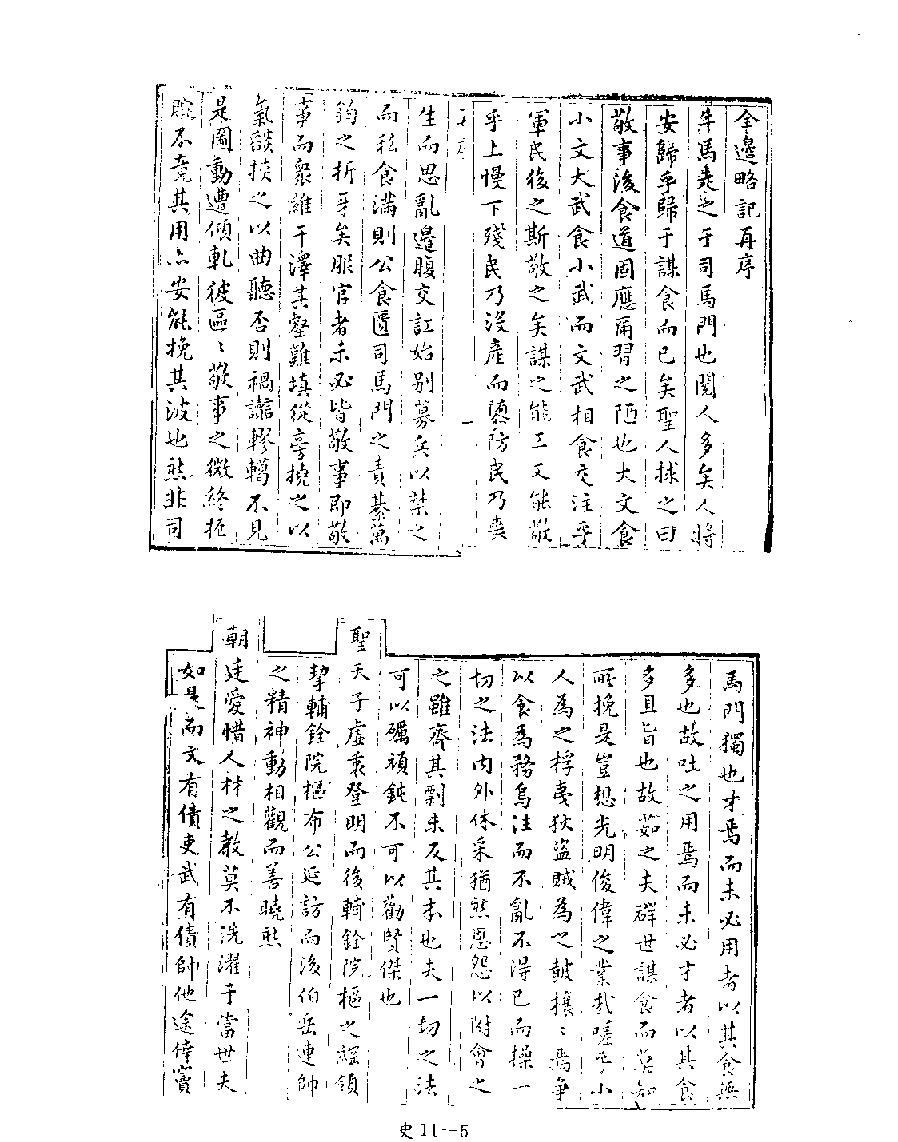 全邊略記再序
牛馬走之于司馬門也閱人多矣人將
安歸乎歸于謀食而已矣聖人捄之曰
敬事後食道固應爾習之陋也大文食
小文大武食小武而文武相食交注乎
軍民後之斯敬之矣謀之能工又能敬
乎上慢下殘民乃沒產而隳防民乃喪
生而思亂邊腹交訌始別募兵以禁之
而私食滿則公食匱司馬門之責綦萬
鈞之折牙矣服官者未必皆敬事即敬
事而衆誰干澤其壑難填從旁撓之以
氣燄挾之以曲聽否則禍譸轇轕不見
是圖動遭傾軋彼區〻敬事之微終扼
腕不竟其用亦安能挽其波也然非司
馬門獨也才焉而未必用者以其食無
多也故吐之用焉而未必才者以其食
多且旨也故茹之夫舉世謀食而莫知
所挽是豈想光明俊偉之業哉嗟乎小
人為之桴夷狄盜賊為之鼓攘〻焉爭
以食為務烏注而不亂不得已而操一
切之法内外休采猶然恩怨以附會之
之雖齊其剽未反其本也夫一切之法
可以礪頑鈍不可以勸賢傑也
聖天子虛衷登明而後輔銓院樞之綱領
挈輔銓院樞布公延訪而後伯岳連帥
之精神動相觀而善曉然
朝廷愛惜人材之教莫不洗濯于當世夫
如是而文有債吏武有債帥他途倖竇
史 11--5